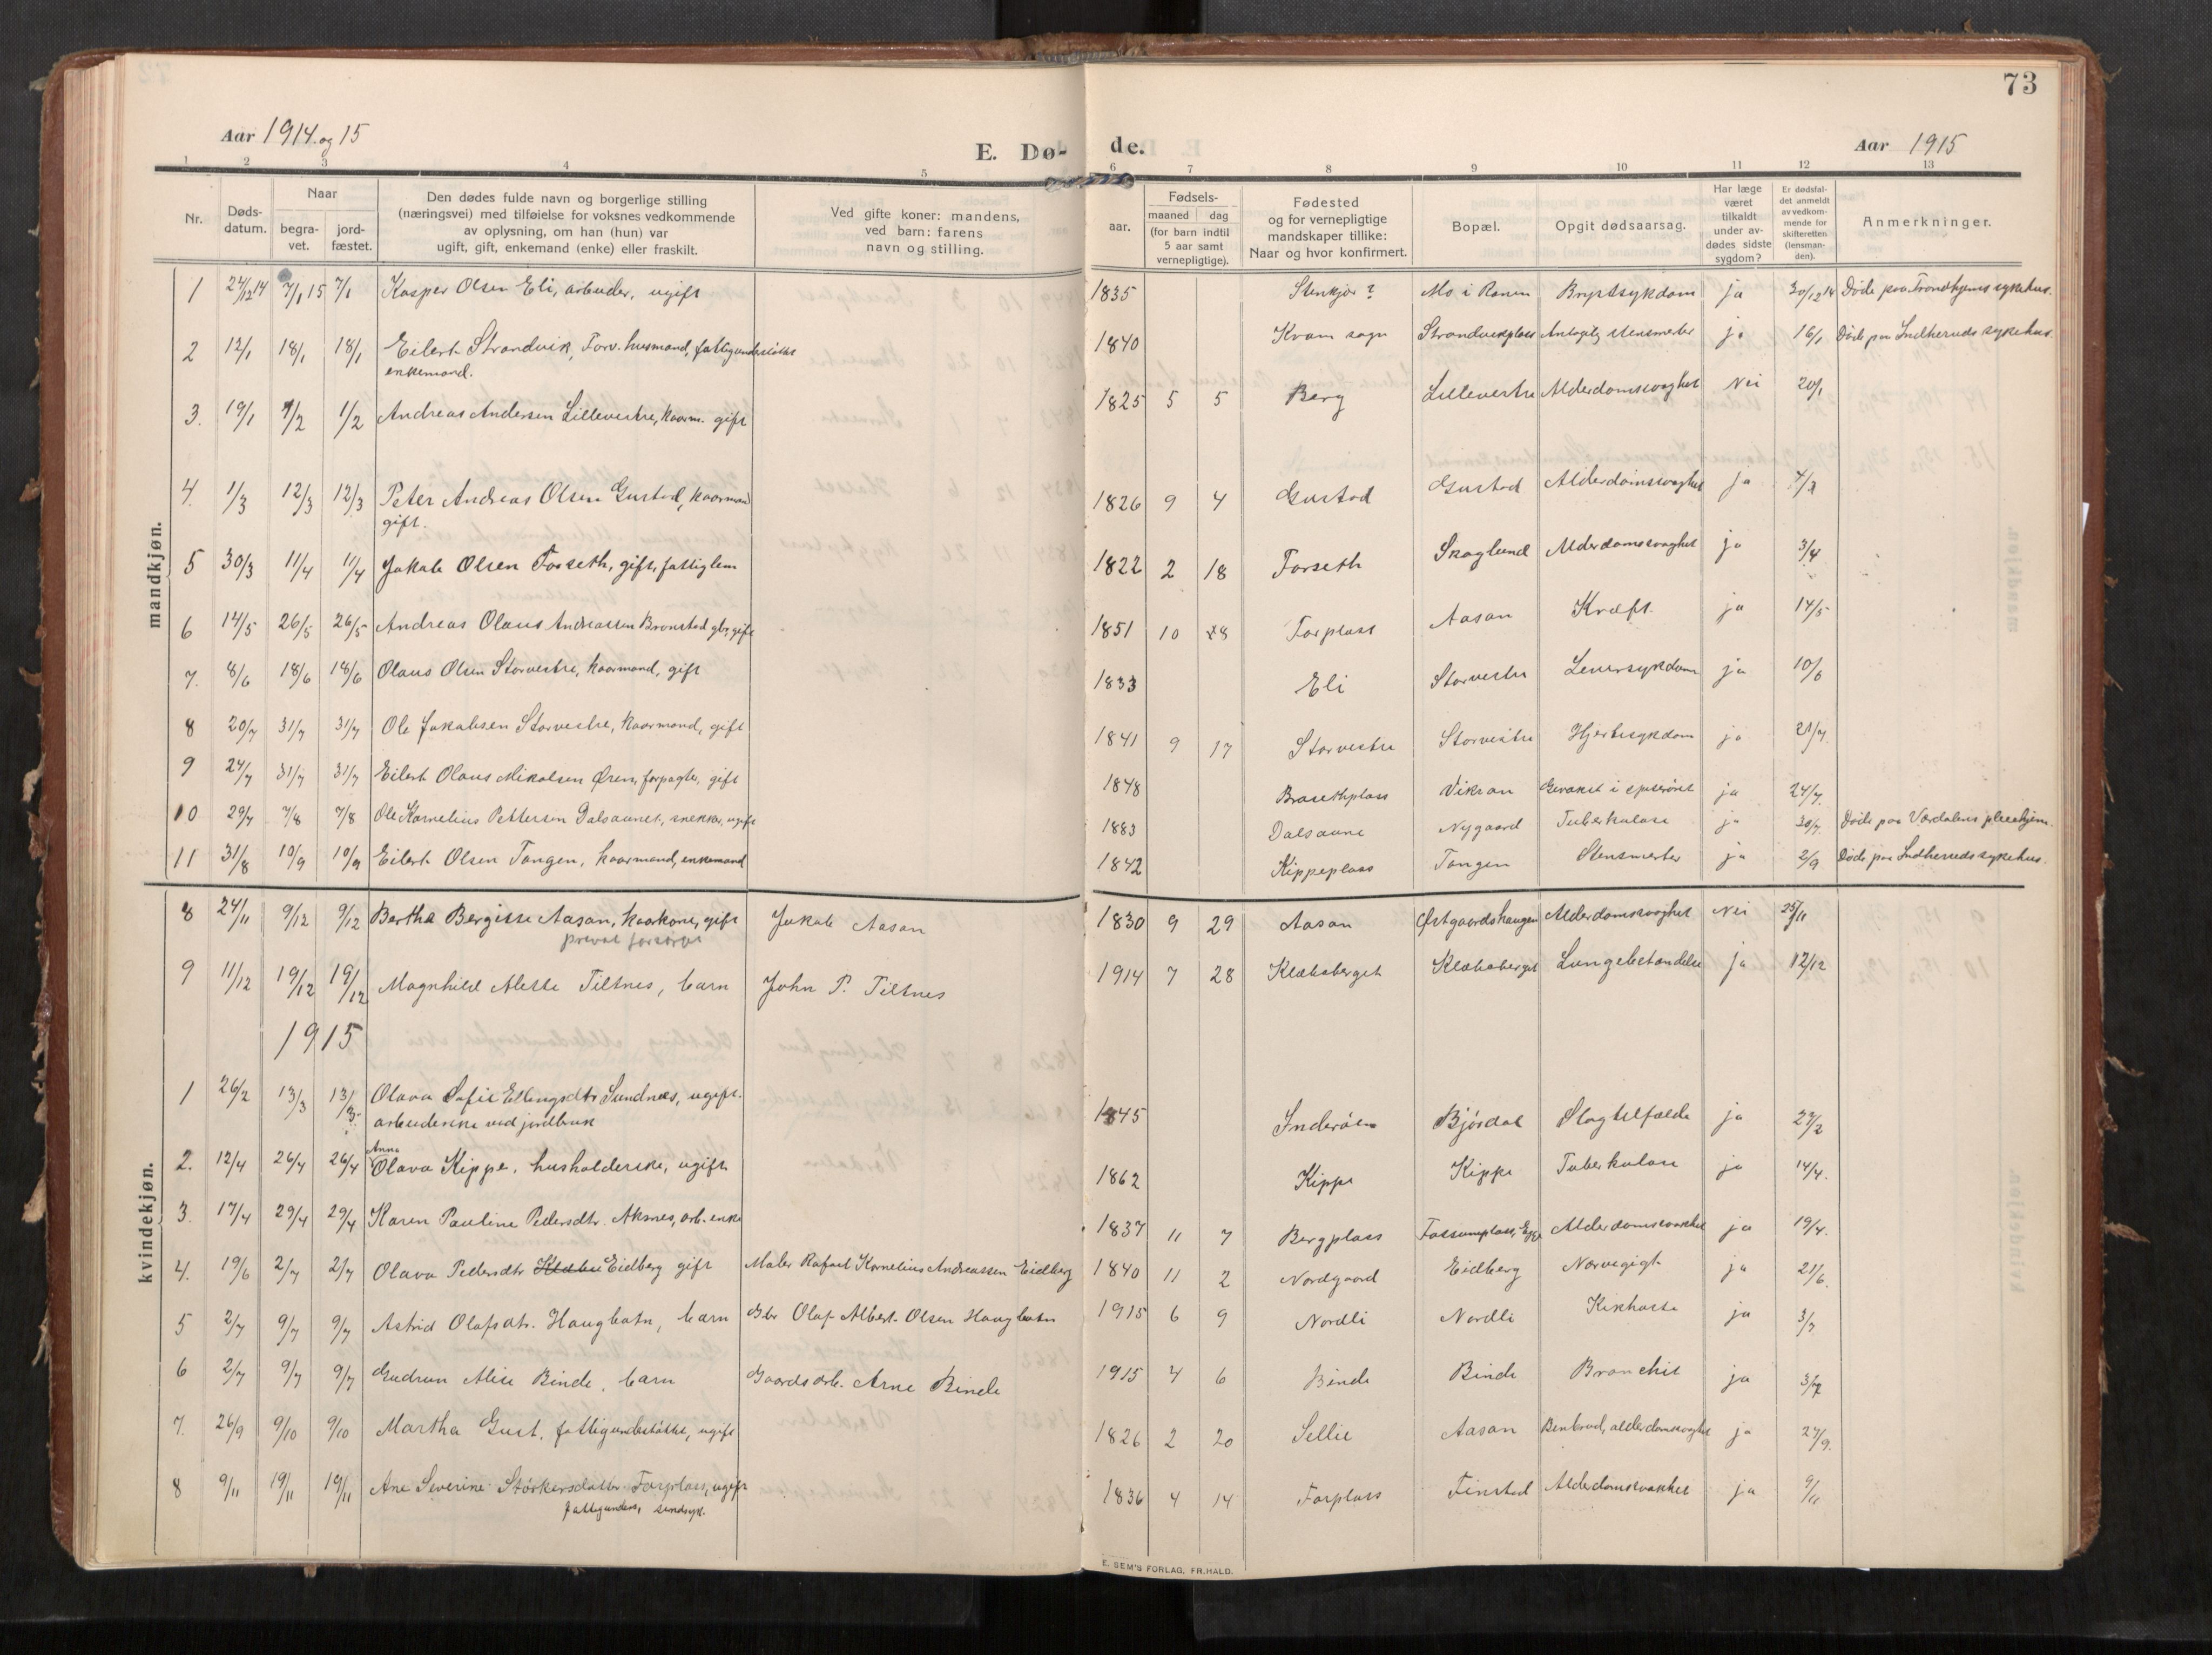 73
Aar 1914 og 15
E. Dø-
de.
Aar 1915
1 2 3 4 5 6 7 8 9 10 11 12 13
Nr.
Døds-
datum.
Naar
begra-
vet.
jord-
fæstet.
Den dødes fulde navn og borgerlige stilling
(næringsvei) med tilføielse for voksnes vedkommende
av oplysning, om han (hun) var
ugift, gift, enkemand (enke) eller fraskilt.
Ved gifte koner: mandens,
ved barn: farens
navn og stilling.
Fødsels-
aar.
maaned
dag
(for barn indtil
5 aar samt
vernepligtige).
Fødested
og for vernepligtige
mandskaper tillike:
Naar og hvor konfirmert.
Bopæl.
Opgit dødsaarsag.
Har læge
været
tilkaldt
under av-
dødes sidste
sygdom?
Er dødsfal-
det anmeldt
av vedkom-
mende for
skifteretten
(lensman-
den).
Anmerkninger.
mandkjøn.
1 24/12 14 7/1 15 7/1 Kasper Olsen Eli, arbeider, ugift 1835 Stenkjær? Mo i Ranen Brystsykdom ja 30/12 14 Døde paa Trondhjems sykehus.
2 12/1 18/1 18/1 Eilert Strandvik, Forv. husmand, fattigunderstøttet 1840 Kvam sogn Strandvikplass Antagelig stensmerter ja 16/1 Døde paa Indherreds sykehus.
enkemand.
3. 19/1 1/2 1/2 Andreas Andersen Lillevestre, kaarm. gift 1825 5 5 Berg Lillevestre Alderdomssvaghet Nei 20/1
4. 1/3 12/3 12/3 Peter Andreas Olsen Gustad, kaarmand 1826 9 4 Gustad Gustad Alderdomssvaghet ja 4/3
gift.
5 30/3 11/4 11/4 Jakob Olsen Forseth, gift, fattiglem 1822 2 18 Forseth Skoglund Alderdomssvaghet ja 3/4
6 14/5 26/5 26/5 Andreas Olaus Andreassen Brønstad gbr, gift 1851 10 28 Forplass Aasan Kræft ja 14/5
7. 8/6 18/6 18/6 Olaus Olsen Storvestre, kaarmand, gift 1833 Eli Storvestre Leversykdom ja 10/6
8 20/7 31/7 31/7 Ole Jakobsen Storvestre, kaarmand, gift 1841 9 17 Storvestre Storvestre Hjertesykdom ja 21/7.
9 24/7 31/7 31/7 Eilert Olaus Mikalsen Øren, forpagter, gift 1848 Brasethplass Vikran Gevækst i spiserøret ja 24/7.
10 29/7 7/8 7/8 Ole Kornelius Pettersen Dalsaunet, snekker, ugift 1883 Dalsaune Nygaard Tuberkulose ja 30/7. Døde paa Værdalens pleiehjem.
11 31/8 10/9 10/9 Eilert Olsen Tangen, kaarmand, enkemand 1842 Kippeplass Tangen Stensmerter ja 2/9 Døde paa Indherreds sykehus.
kvindekjøn.
8 24/11 9/12 9/12 Bertha Bergitte Aasan, kaarkone, gift Jakob Aasan 1830 9 29 Aasan Østgaardshaugen Alderdomssvaghet Nei 25/11
privat forsørget
9 11/12 19/12 19/12 Magnhild Alette Tiltnes, barn John P. Tiltnes 1914 7 28 Klæbaberget Klæbaberget Lungebetændelse ja 12/12
1915
1 26/2 13/3 13/3. Olava Sofie Ellingsdtr Sundnes, ugift. 1845 Inderøen Bjørdal Slagtilfælde ja 27/2
arbeiderske ved jordbruk
2. 12/4 26/4 26/4 Anna Olava Kippe, husholderske, ugift 1862 Kippe Kippe Tuberkulose ja 14/4.
3. 17/4 29/4 29/4 Karen Pauline Pedersdtr. Aksnes, arb. enke 1837 11 7 Bergplass Fossumplass, Egge Alderdomssvakhet ja 19/4.
4. 19/6 2/7 2/7 Olava Pedersdtr Klæbu Eidberg gift Maler Rafael Kornelius Andreassen Eidberg 1840 11 2 Nordgaard Eidberg Nervegigt ja 21/6.
5 2/7 9/7 9/7 Astrid Olafsdtr. Haugbotn, barn Gbr Olaf Albert Olsen Haugbotn 1915 6 9 Nordli Nordli Kikhoste ja 3/7
6 2/7 9/7 9/7 Gudrun Alise Binde, barn Gaardsarb. Arne Binde 1915 4 6 Binde Binde Bronchit ja 3/7
7. 26/9 9/10 9/10 Martha Gust, fattigunderstøttet, ugift 1826 2 20 Sellie Aasan Benbrud, alderdomssvaghet ja 27/9.
8 9/11 19/11 19/11 Ane Severine Størkersdatter Forplass, ugift 1836 4 14 Forplass Finstad Alderdomssvakhet ja 9/11
fattigunders, sindsyk.
E. SEM'S FORLAG, FR.HALD.